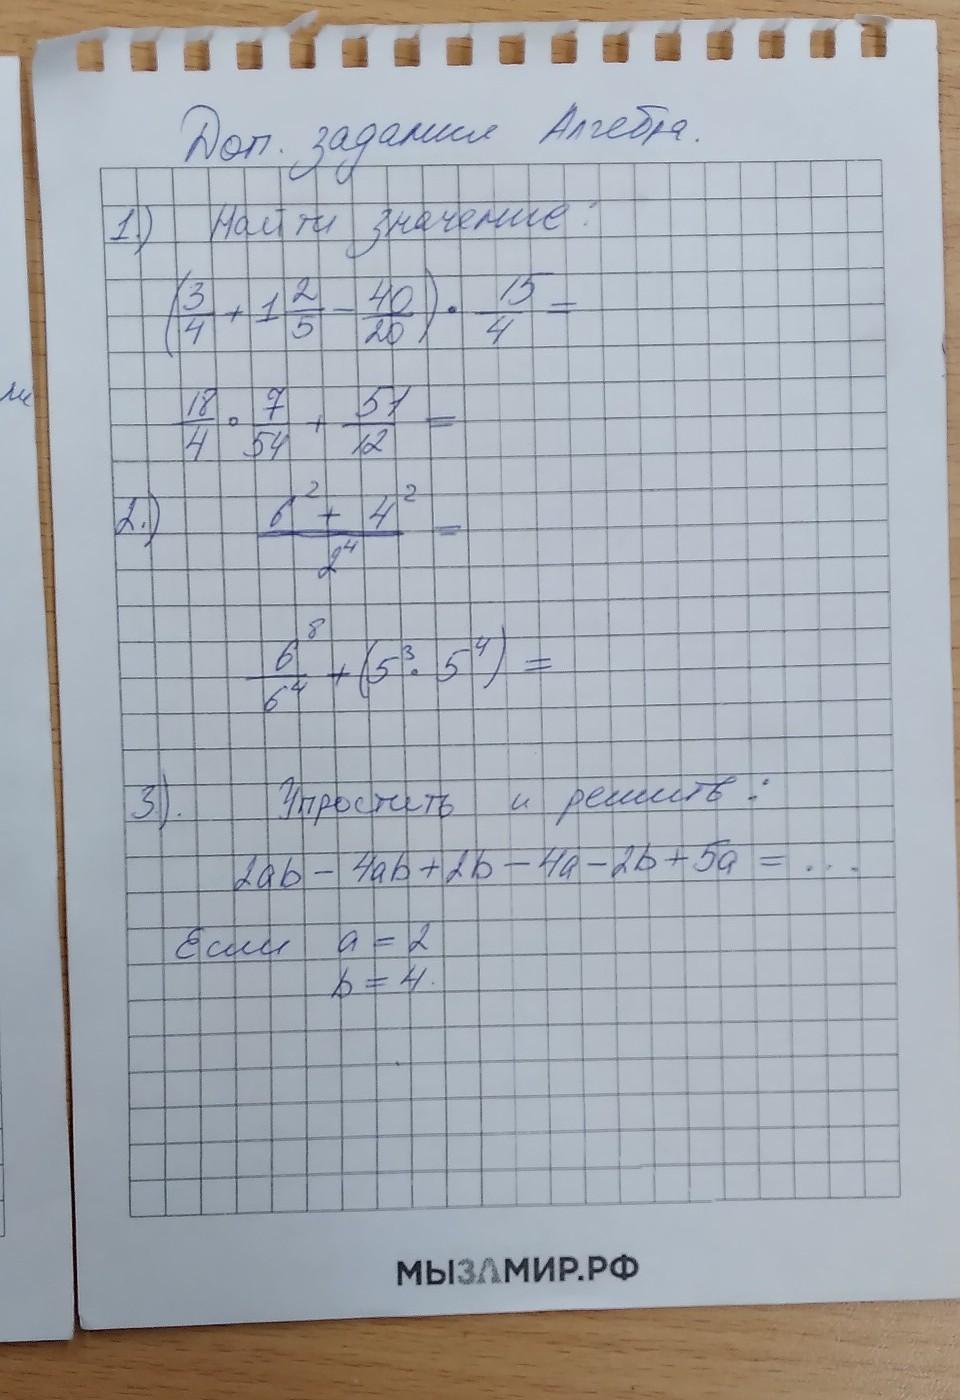 Доп. задания Алгебра.
ли
1.) Найти значение:
(3/4 + 1 2/5 - 40/20) · 15/4 =
18/4 · 7/54 + 51/12 =
2.) (6² + 4²)/2⁴ =
6⁸/6⁴ + (5³ · 5⁴) =
3). Упростить и решить:
2ab - 4ab + 2b - 4a - 2b + 5a = ...
Если a = 2
b = 4.
МЫЗАМИР.РФ